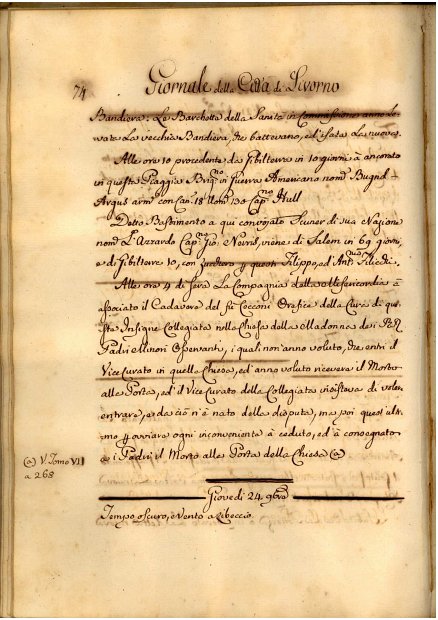 74
Giornale della Città di Livorno
Bandiera: Le Barchette della Sanità in Commissione anno le=
vata La vecchia Bandiera, che battevano, ed isata La nuova.
Alle ore 10 procedente da Gibilterra in 10 giorni à ancorato
in questa Piaggia Brig.no in Guerra Americano nom.o
Argus arm.o con Can. 18 Uom.i 130 Cap.no Hull
Detto Bastimento a qui convojato Scuner di sua Nazione
nom.o L'Azzardo Cap.no Gio. Norris, viene di Salem in 69 giorni,
e di Gibilterra 10, con a questi Filippo, ed Ant.o Filicchi.
Alle ore 4 di Sera La Compagnia della Misericordia à
associato il Cadavere del fù Cecconi Orefice della Cura di que=
sta Insigne Collegiata nella Chiesa della Madonna de i PP.
Padri Minori Osservanti, i quali non anno voluto, che entri il
Vice Curato in quella Chiesa, ed anno voluto ricevere il Morto
alla Porta, ed il Vice Curato della Collegiata insisteva di voler
entrare, e da ciò n'è nato della disputa, ma poi quest'ulti=
mo p ovviare ogni inconveniente à ceduto, ed à consegnato
a i Padri il Morto alla Porta della Chiesa (a)
(a) V. Tomo VII
a 268
Giovedì 24 9bre
Tempo oscuro, e Vento a Libeccio